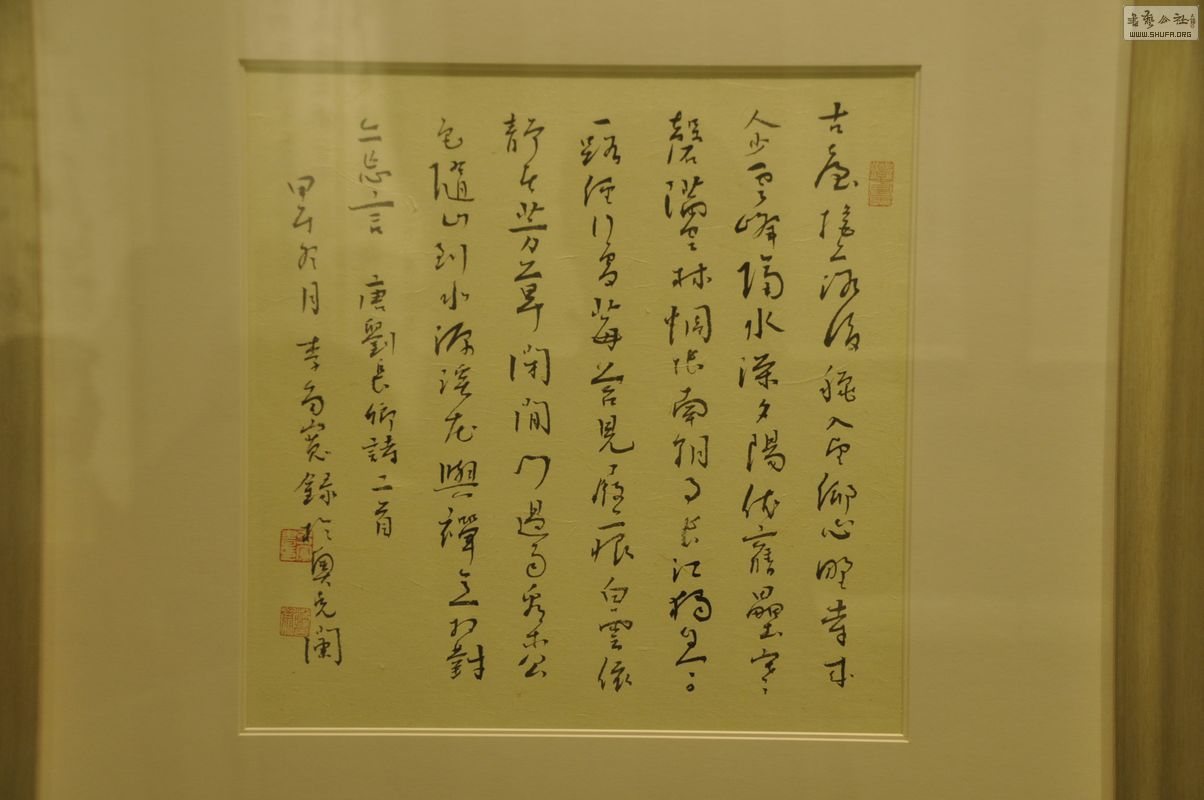 古臺搖落後秋入望鄉心野寺來
人少雲峰隔水深夕陽依舊壘寒
磬滿空林惆悵南朝事長江獨至今
一路經行處莓苔見履痕白雲依
靜渚芳草閉閒門過雨看松
色隨山到水源溪花與禪意相對
亦忘言 唐劉長卿詩二首
甲午冬月 李 錄於奧克蘭
書藝公社
WWW.SHUFA.ORG